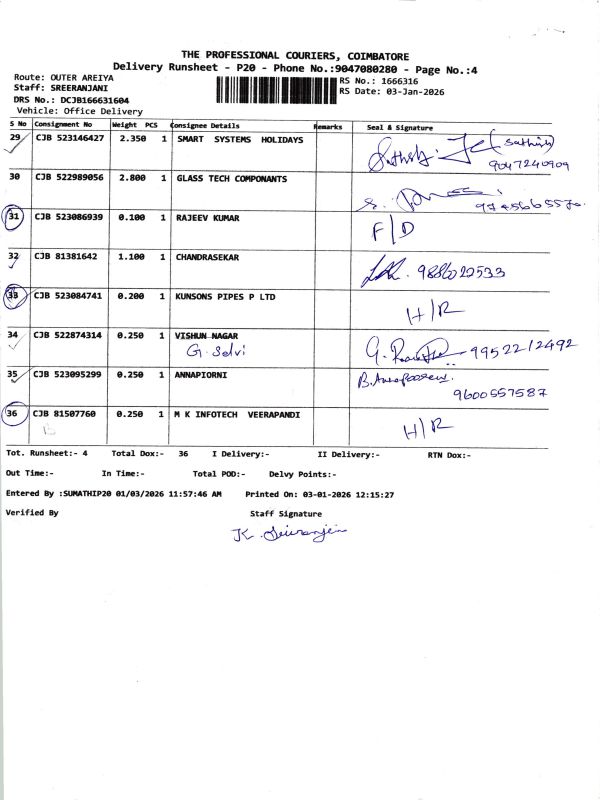 THE PROFESSIONAL COURIERS, COIMBATORE
Delivery Runsheet - P20 - Phone No.:9047080280 - Page No.:4
Route: OUTER AREIYA
RS No.: 1666316
Staff: SREERANJANI
RS Date: 03-Jan-2026
DRS No.: DCJB166631604
Vehicle: Office Delivery
S No Consignment No Weight PCS Consignee Details Remarks Seal & Signature
29 CJB 523146427 2.350 1 SMART SYSTEMS HOLIDAYS Sathish (Sathish)
9047240909
30 CJB 522989056 2.800 1 GLASS TECH COMPONANTS
31 CJB 523086939 0.100 1 RAJEEV KUMAR F/D
32 CJB 81381642 1.100 1 CHANDRASEKAR
33 CJB 523084741 0.200 1 KUNSONS PIPES P LTD H/R
34 CJB 522874314 0.250 1 VISHUN NAGAR
G. Selvi 9952212492
35 CJB 523095299 0.250 1 ANNAPIORNI
9600557587
36 CJB 81507760 0.250 1 M K INFOTECH VEERAPANDI H/R
Tot. Runsheet:- 4 Total Dox:- 36 I Delivery:- II Delivery:- RTN Dox:-
Out Time:- In Time:- Total POD:- Delvy Points:-
Entered By :SUMATHIP20 01/03/2026 11:57:46 AM Printed On: 03-01-2026 12:15:27
Verified By Staff Signature